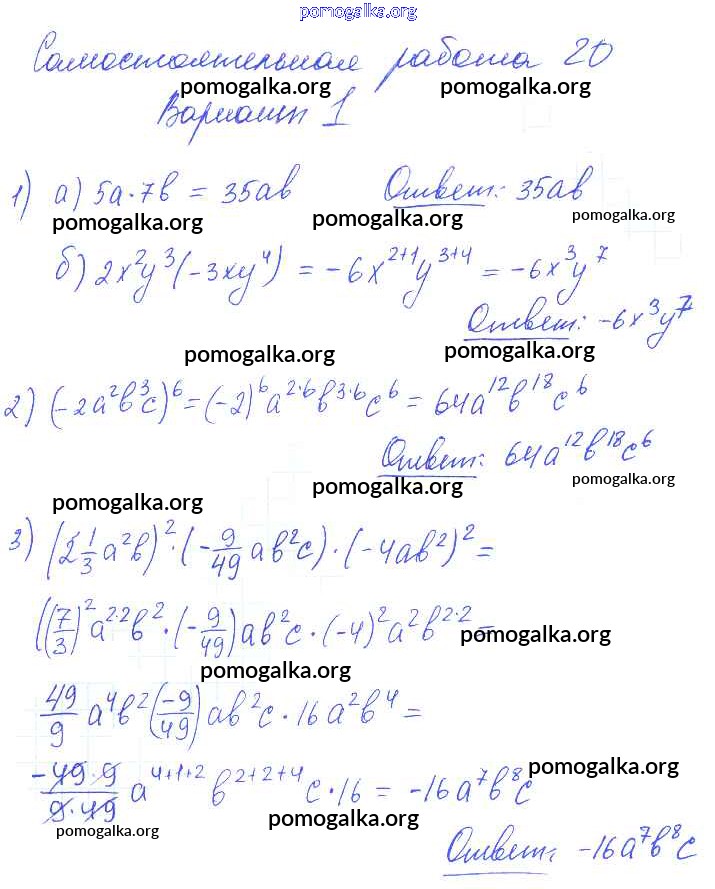 pomogalka.org
Самостоятельная работа 20
pomogalka.org pomogalka.org
Вариант 1
1) а) 5a·7b = 35ab Ответ: 35ab
pomogalka.org pomogalka.org pomogalka.org
б) 2x²y³(-3xy⁴) = -6x²⁺¹y³⁺⁴ = -6x³y⁷
Ответ: -6x³y⁷
pomogalka.org pomogalka.org
2) (-2a²b³c)⁶ = (-2)⁶a²·⁶b³·⁶c⁶ = 64a¹²b¹⁸c⁶
Ответ: 64a¹²b¹⁸c⁶
pomogalka.org pomogalka.org pomogalka.org
3) (2 1/3 a²b)²·(-9/49 ab²c)·(-4ab²)² =
((7/3)²a²·²b²·(-9/49)ab²c·(-4)²a²b²·² =
pomogalka.org
pomogalka.org
49/9 a⁴b²(-9/49)ab²c·16a²b⁴ =
-49·9/9·49 a⁴⁺¹⁺²b²⁺²⁺⁴c·16 = -16a⁷b⁸c
pomogalka.org
pomogalka.org pomogalka.org
Ответ: -16a⁷b⁸c